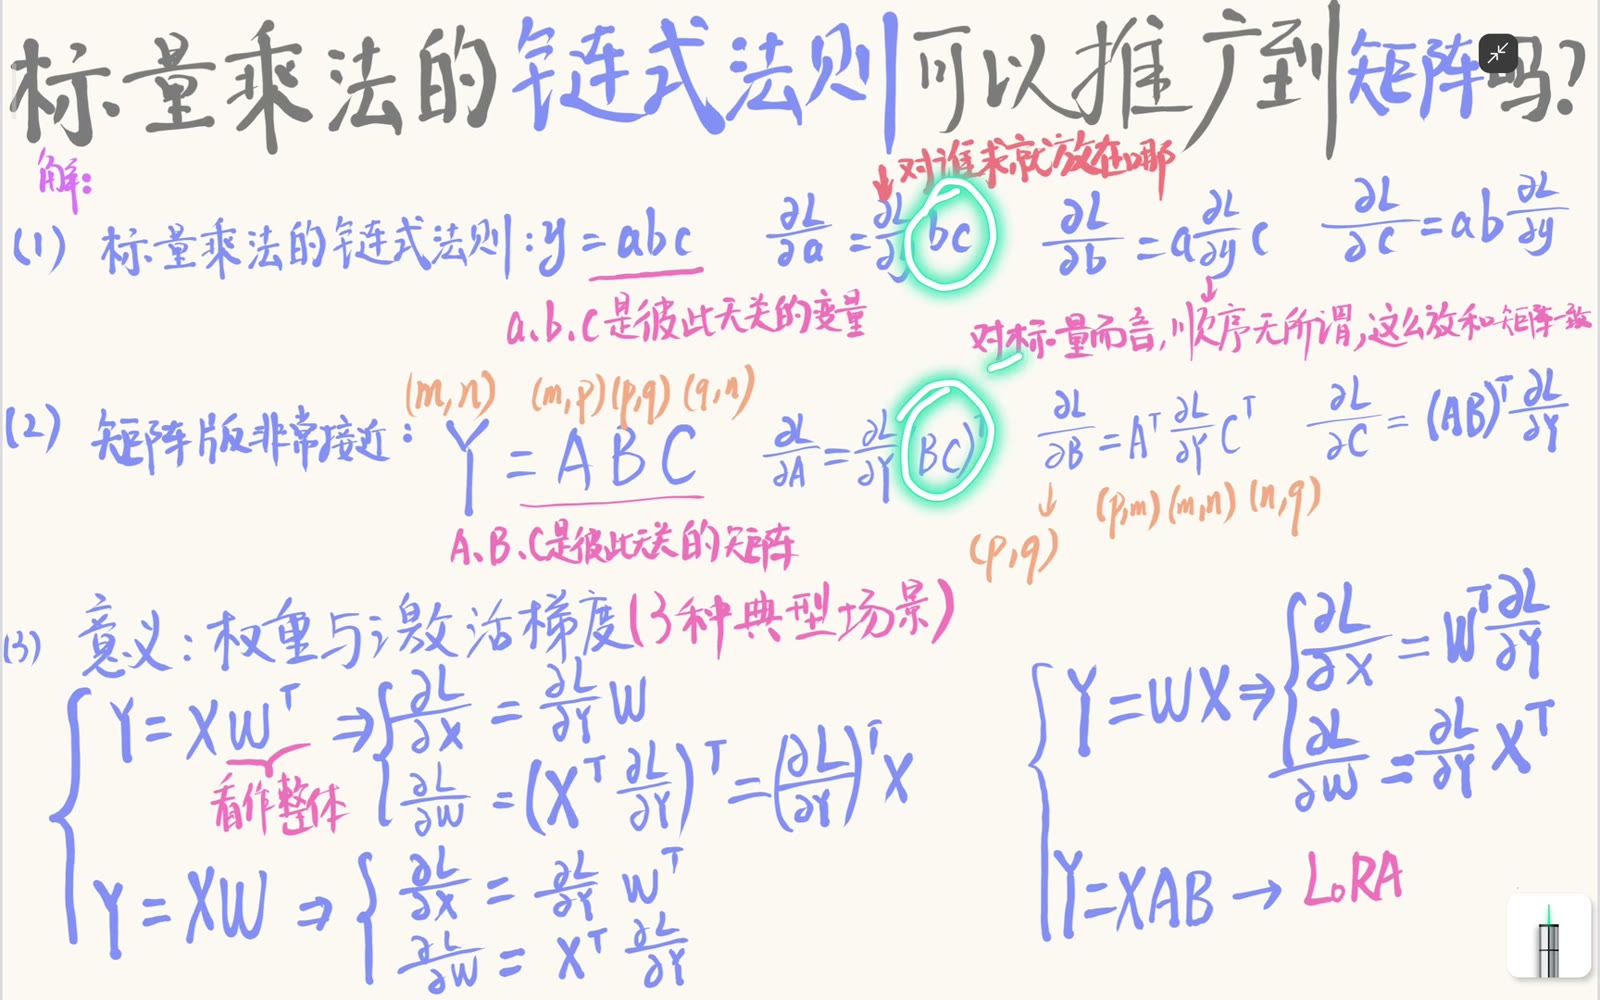 标量乘法的链式法则可以推广到矩阵吗?
解:
对谁求就放在哪
(1) 标量乘法的链式法则: y = abc ∂L/∂a = ∂L/∂y bc ∂L/∂b = a ∂L/∂y c ∂L/∂c = ab ∂L/∂y
a、b、c是彼此无关的变量
对标量而言,顺序无所谓,这么放和矩阵一致
(m,n) (m,p)(p,q)(q,n)
(2) 矩阵版非常接近: Y = ABC ∂L/∂A = ∂L/∂Y (BC)ᵀ ∂L/∂B = Aᵀ ∂L/∂Y Cᵀ ∂L/∂C = (AB)ᵀ ∂L/∂Y
A、B、C是彼此无关的矩阵
(p,q) (p,m)(m,n)(n,q)
(3) 意义: 权重与激活梯度(3种典型场景)
Y = XWᵀ ⇒ ∂L/∂X = ∂L/∂Y W
∂L/∂W = (Xᵀ ∂L/∂Y)ᵀ = (∂L/∂Y)ᵀ X
看作整体
Y = XW ⇒ ∂L/∂X = ∂L/∂Y Wᵀ
∂L/∂W = Xᵀ ∂L/∂Y
Y = WX ⇒ ∂L/∂X = Wᵀ ∂L/∂Y
∂L/∂W = ∂L/∂Y Xᵀ
Y = XAB → LoRA